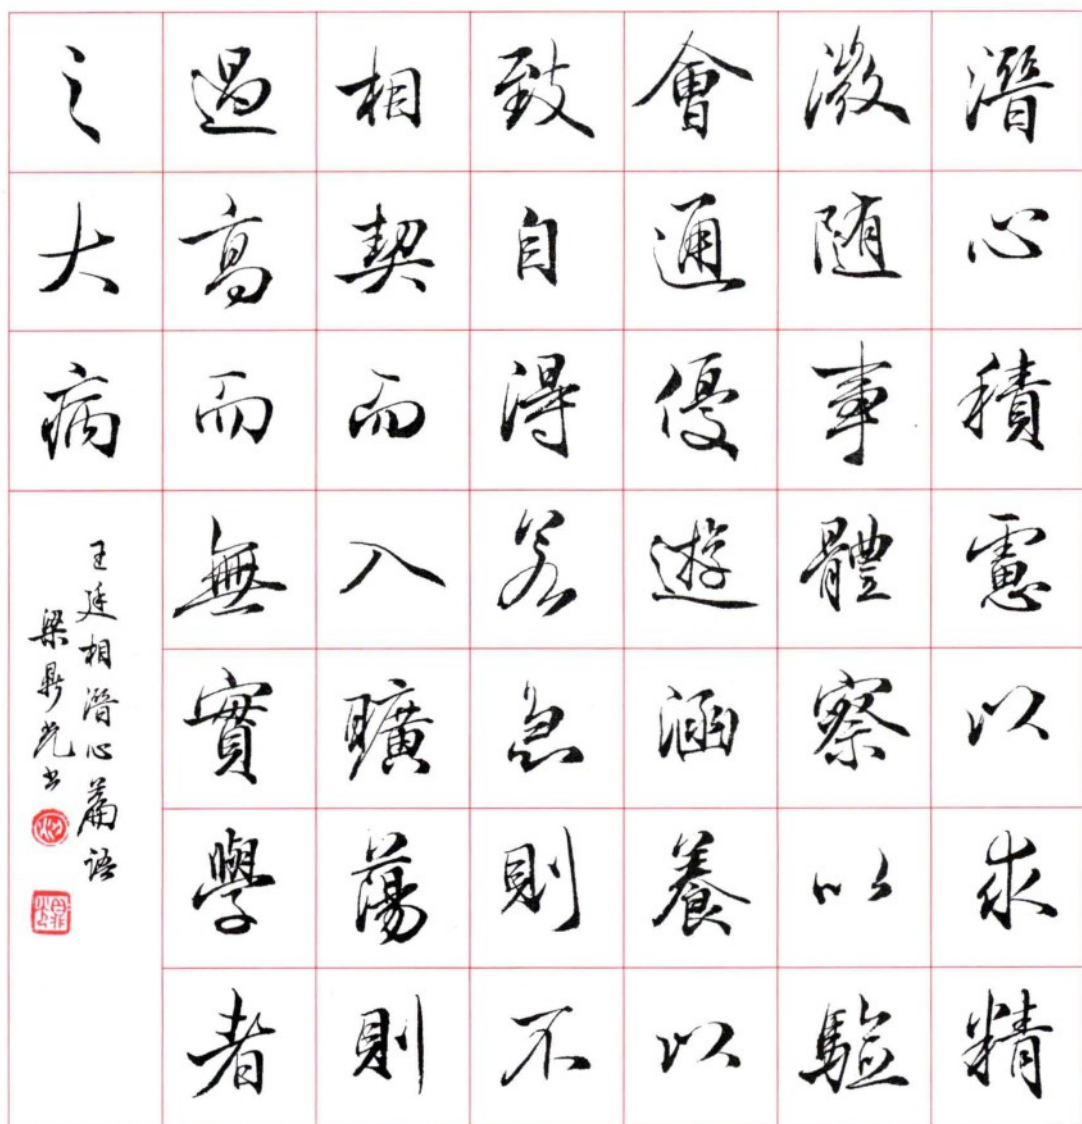 潛心積慮以求精
微随事體察以驗
會通優游涵養以
致自得若急則不
相契而入曠蕩則
過高而無實學者
之大病
王廷相潛心篇語
梁鼎光书